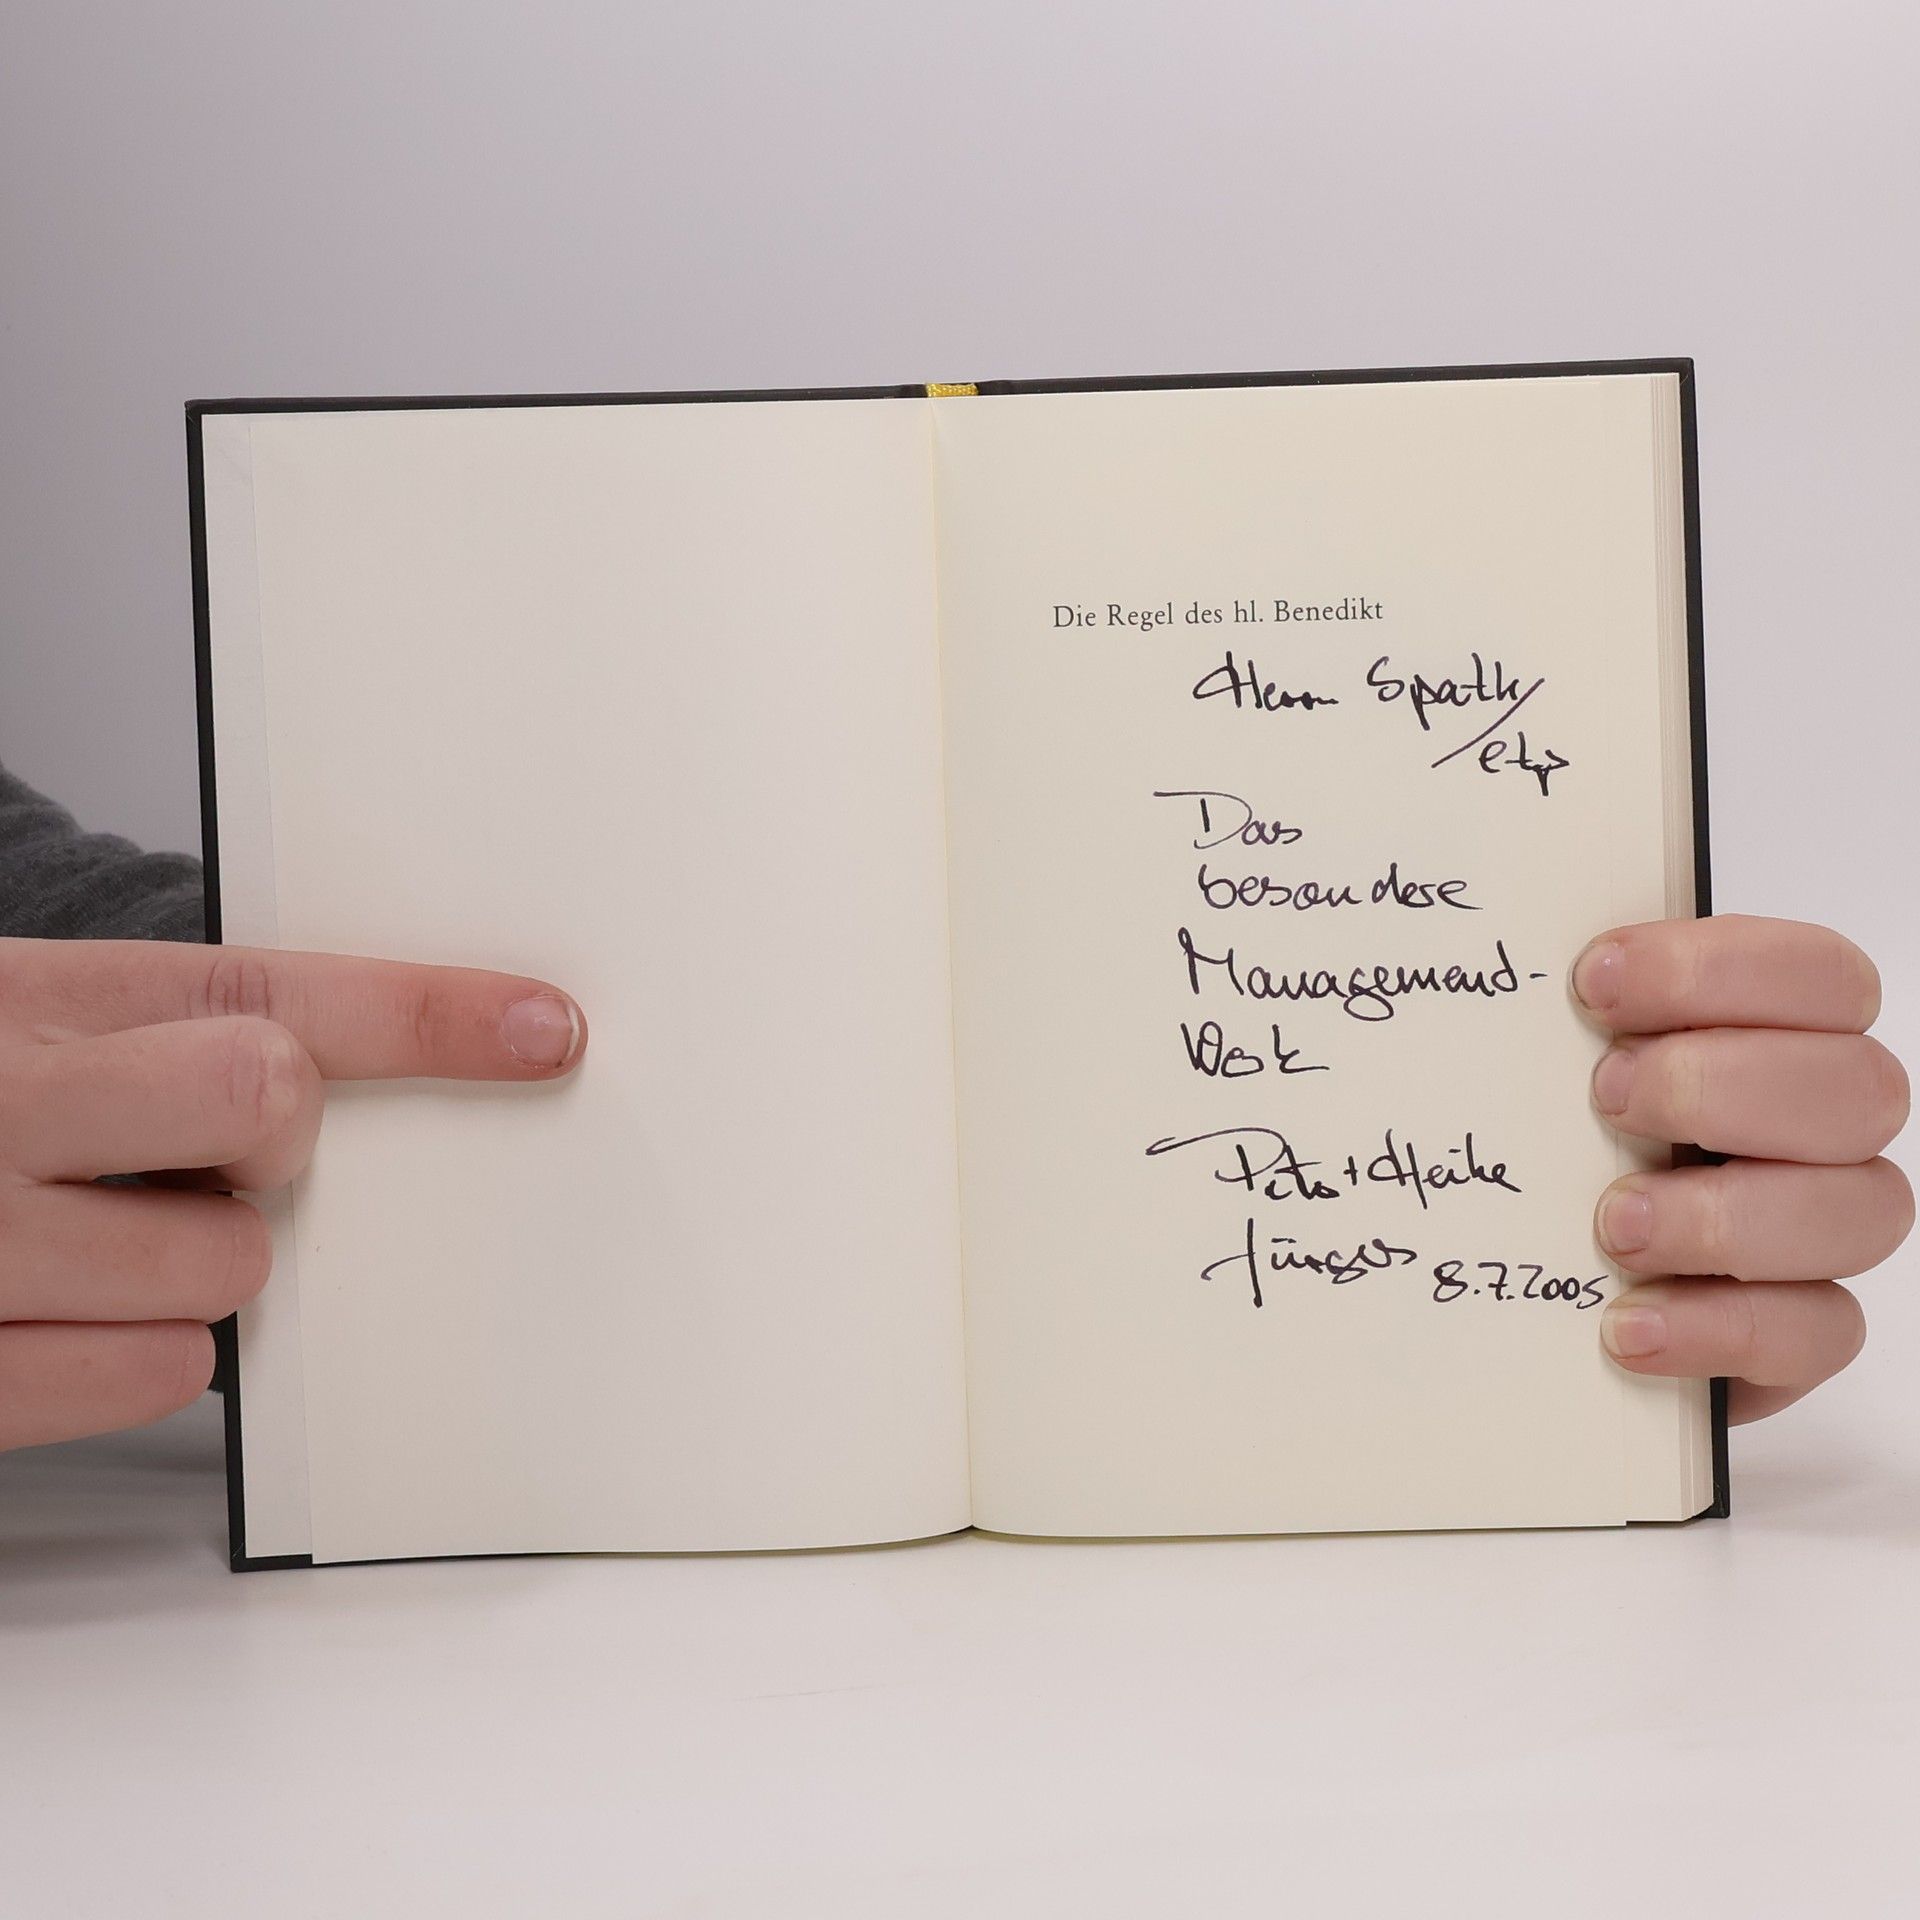 Die Regel des hl. Benedikt
Herrn Spath/
etp
Das
besondere
Managemend-
Werk
Peter + Heike
Jürgens 8.7.2005